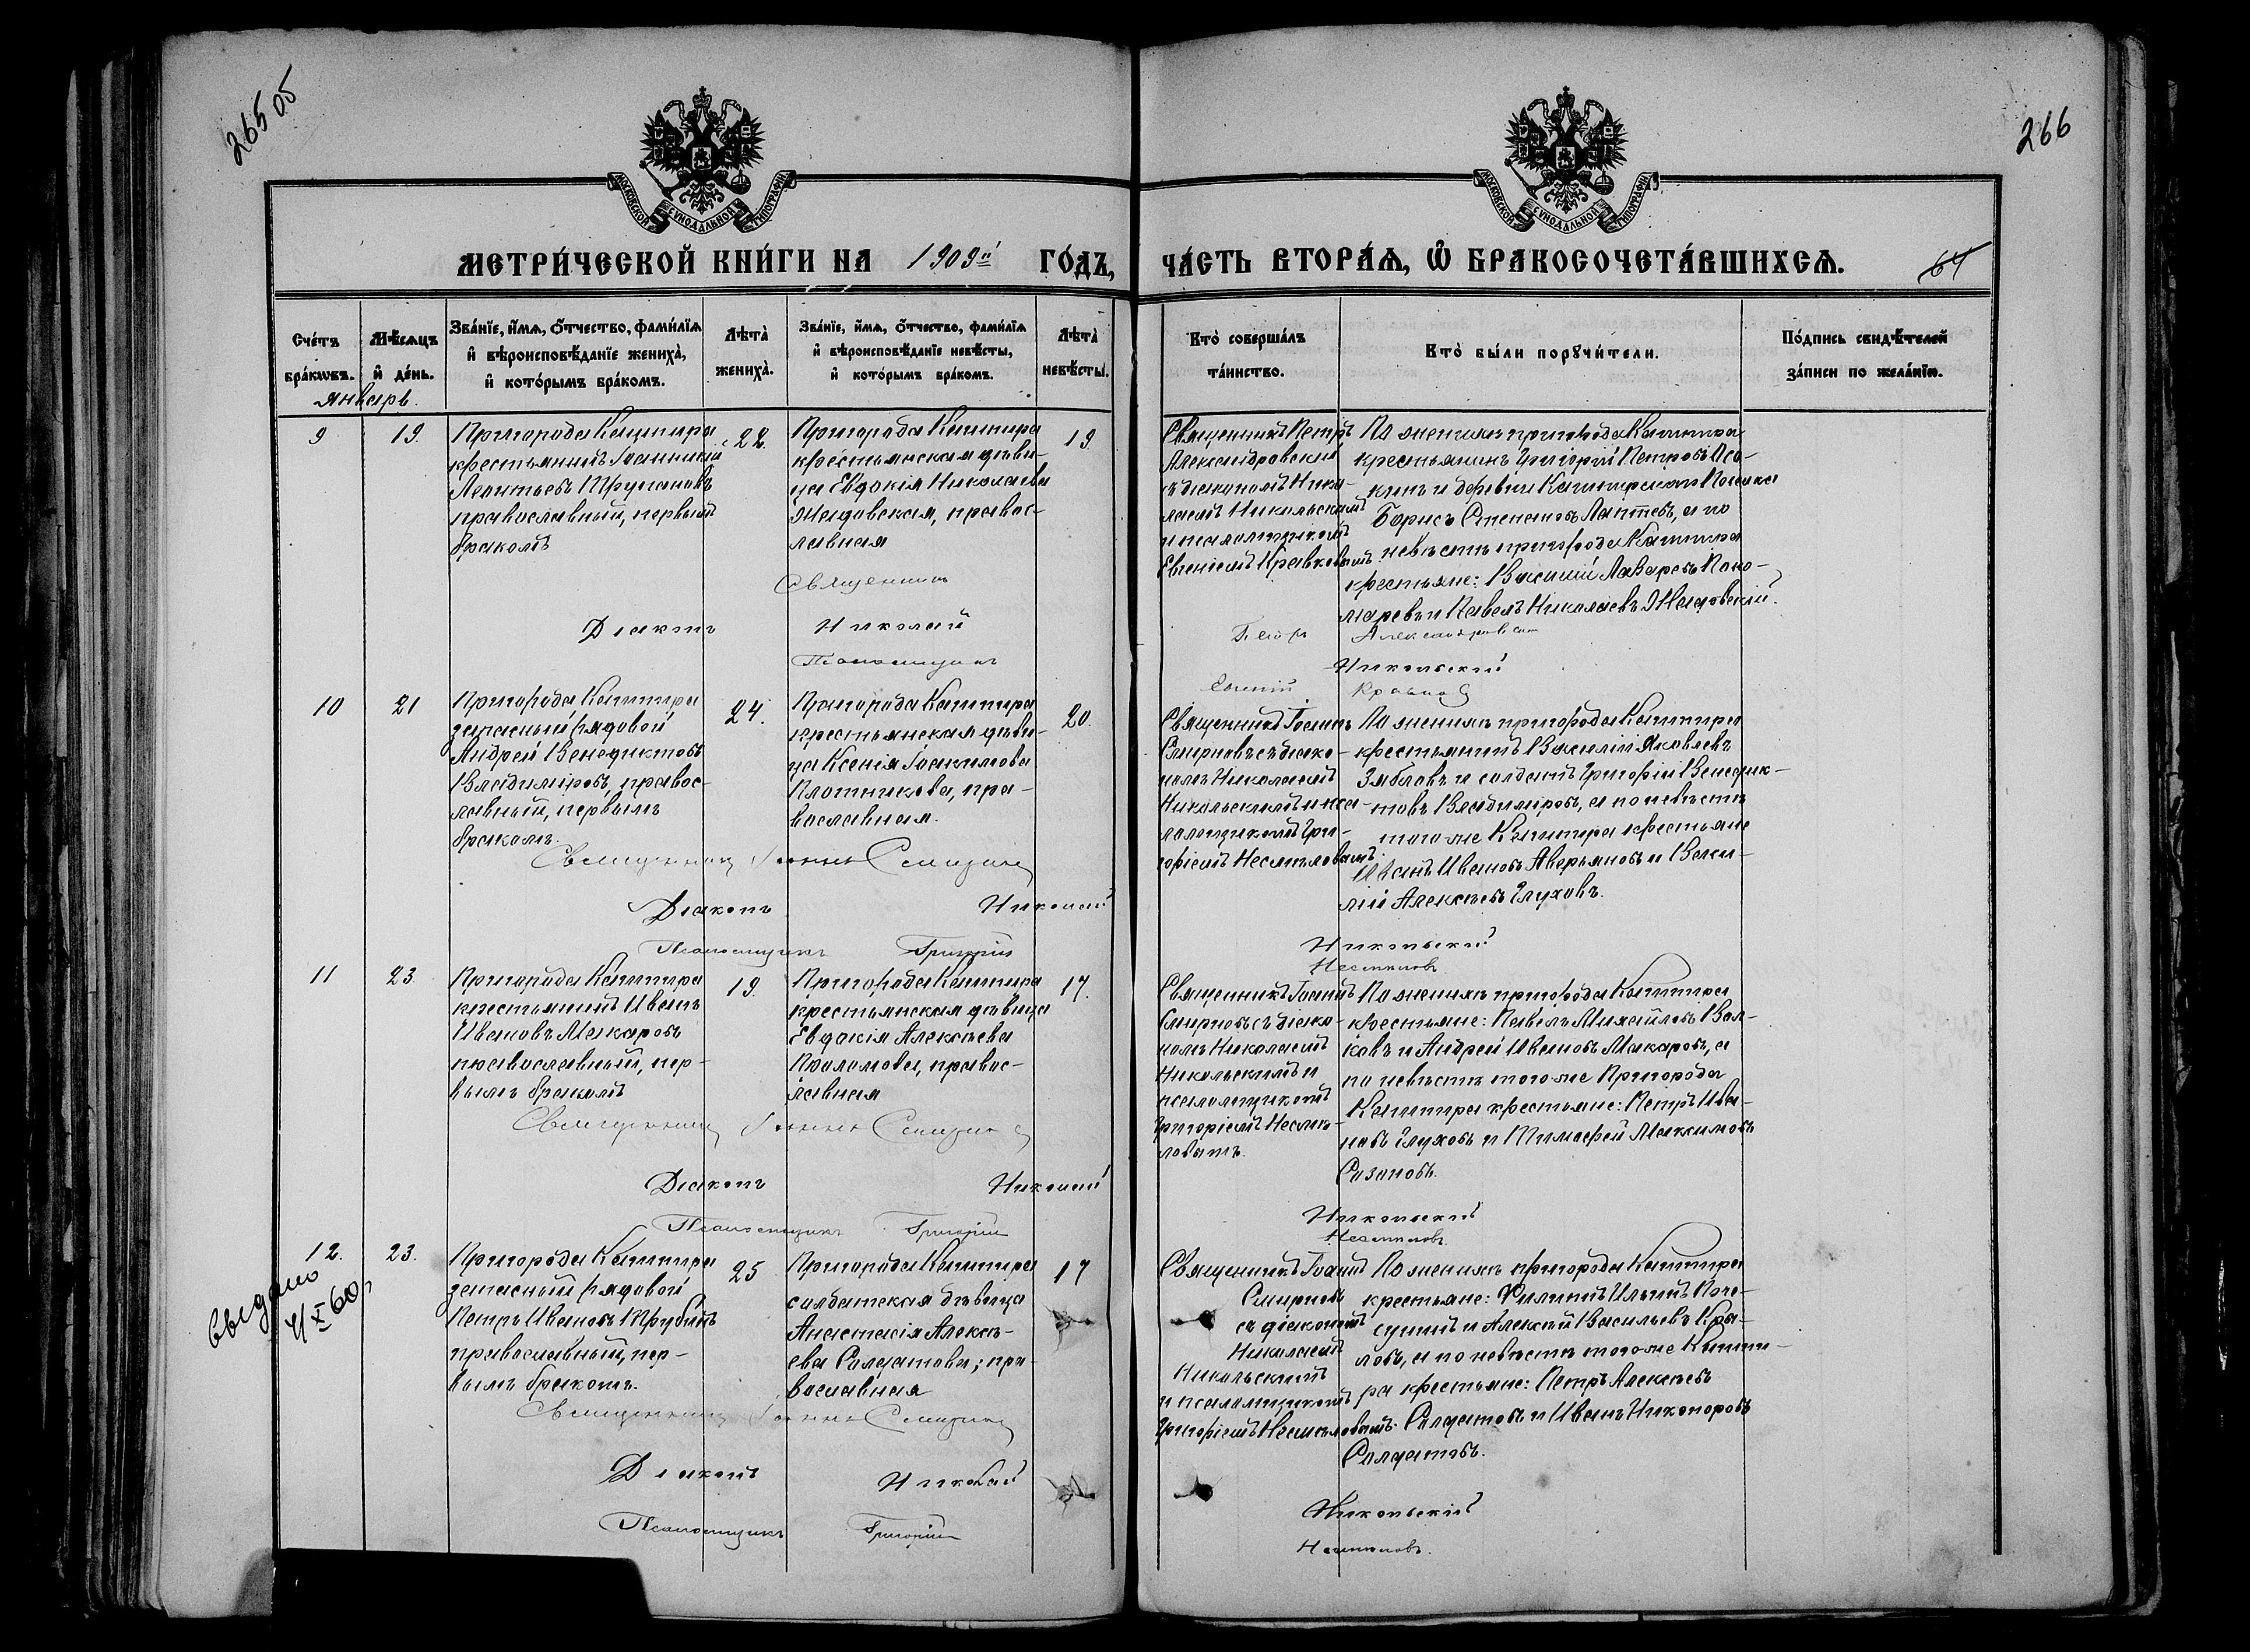 265 об
266
МОСКОВСКОЙ СѴНОДАЛЬНОЙ ТИПОГРАФІИ
МОСКОВСКОЙ СѴНОДАЛЬНОЙ ТИПОГРАФІИ
МЕТРИ́ЧЕСКОЙ КНИ́ГИ НА 1909й ГО́ДЪ,
ЧА́СТЬ ВТОРА́Ѧ, Ѡ҆ БРАКОСОЧЕТА́ВШИХСѦ.
64
Сче́тъ
бра́кѡвъ.
Мѣ́сѧцъ
и҆ де́нь.
Зва́нїе, и҆́мѧ, ѻ҆́тчество, фами́лїѧ
и҆ вѣроисповѣ́данїе жениха̀,
и҆ кото́рымъ бра́комъ.
Лѣта̀
жениха̀.
Зва́нїе, и҆́мѧ, ѻ҆́тчество, фами́лїѧ
и҆ вѣроисповѣ́данїе невѣ́сты,
и҆ кото́рымъ бра́комъ.
Лѣта̀
невѣ́сты.
Кто̀ соверша́лъ
та́инство.
Кто̀ бы́ли порꙋчи́тели.
По́дпись свидѣ́телей
за́писи по жела́нїю.
Январь.
9
19.
Пригорода Кашпира
крестьянинъ Іоанникій
Леонтьевъ
православный, первымъ
бракомъ
22.
Пригорода Кашпира
крестьянская дѣви-
ца Евдокія Николаева
Жадовская, правос-
лавная
19
Священникъ Петръ
Александровскій
съ діакономъ Нико-
лаемъ Никольскимъ
и псаломщикомъ
Евгеніемъ Кравковымъ.
По женихѣ пригорода Кашпира
крестьянинъ Григорій Петровъ Осо-
кинъ и деревни Кашпирской
Борисъ Степановъ Лаптевъ, а по
невѣстѣ пригорода Кашпира
крестьяне: Василій Лазаревъ Поно-
маревъ и Павелъ Николаевъ Жадовскій.
Священникъ
Петръ Александровскій
Діаконъ Николай Никольскій
Псаломщикъ Евгеній Кравковъ
10
21
Пригорода Кашпира
запасный рядовой
Андрей Венедиктовъ
Владиміровъ, правос-
лавный, первымъ
бракомъ.
24.
Пригорода Кашпира
крестьянская дѣви-
ца Ксенія Іоакимова
Плотникова, пра-
вославная.
20.
Священникъ Іоаннъ
Смирновъ съ діако-
номъ Николаемъ
Никольскимъ и пса-
ломщикомъ Гри-
горіемъ Несмѣловымъ.
По женихѣ пригорода Кашпира
крестьянинъ Василій Яковлевъ
Зябловъ и солдатъ Григорій Венедик-
товъ Владиміровъ, а по невѣстѣ
того-же Кашпира крестьяне
Иванъ Ивановъ Аверьяновъ и Васи-
лій Алексѣевъ Глуховъ.
Священникъ Іоаннъ Смирновъ
Діаконъ Николай Никольскій
Псаломщикъ Григорій Несмѣловъ
11
23
Пригорода Кашпира
крестьянинъ Иванъ
Ивановъ Макаровъ
православный, пер-
вымъ бракомъ
19.
Пригорода Кашпира
крестьянская дѣвица
Евдокія Алексѣева
правос-
лавная
17.
Священникъ Іоаннъ
Смирновъ съ діако-
номъ Николаемъ
Никольскимъ и
псаломщикомъ
Григоріемъ Несмѣ-
ловымъ.
По женихѣ пригорода Кашпира
крестьяне: Павелъ Михайловъ Вол-
ковъ и Андрей Ивановъ Макаровъ, а
по невѣстѣ того-же Пригорода
Кашпира крестьяне: Петръ Ива-
новъ Глуховъ и Тимофей Максимовъ
Сазоновъ.
Священникъ Іоаннъ Смирновъ
Діаконъ Николай Никольскій
Псаломщикъ Григорій Несмѣловъ.
12.
23.
выдано
4/X 60.
Пригорода Кашпира
запасный рядовой
Петръ Ивановъ Трубинъ
православный, пер-
вымъ бракомъ.
25
Пригорода Кашпира
солдатская дѣвица
Анастасія Алексѣ-
ева Солдатова, пра-
вославная
17
Священникъ Іоаннъ
Смирновъ
съ діакономъ
Николаемъ
Никольскимъ
и псаломщикомъ
Григоріемъ Несмѣловымъ.
По женихѣ пригорода Кашпира
крестьяне: Филиппъ Ильинъ
и Алексѣй Васильевъ Кры-
ловъ, а по невѣстѣ того-же Кашпи-
ра крестьяне: Петръ Алексѣевъ
Солдатовъ и Иванъ Никоноровъ
Солдатовъ.
Священникъ Іоаннъ Смирновъ
Діаконъ Николай Никольскій
Псаломщикъ Григорій Несмѣловъ.